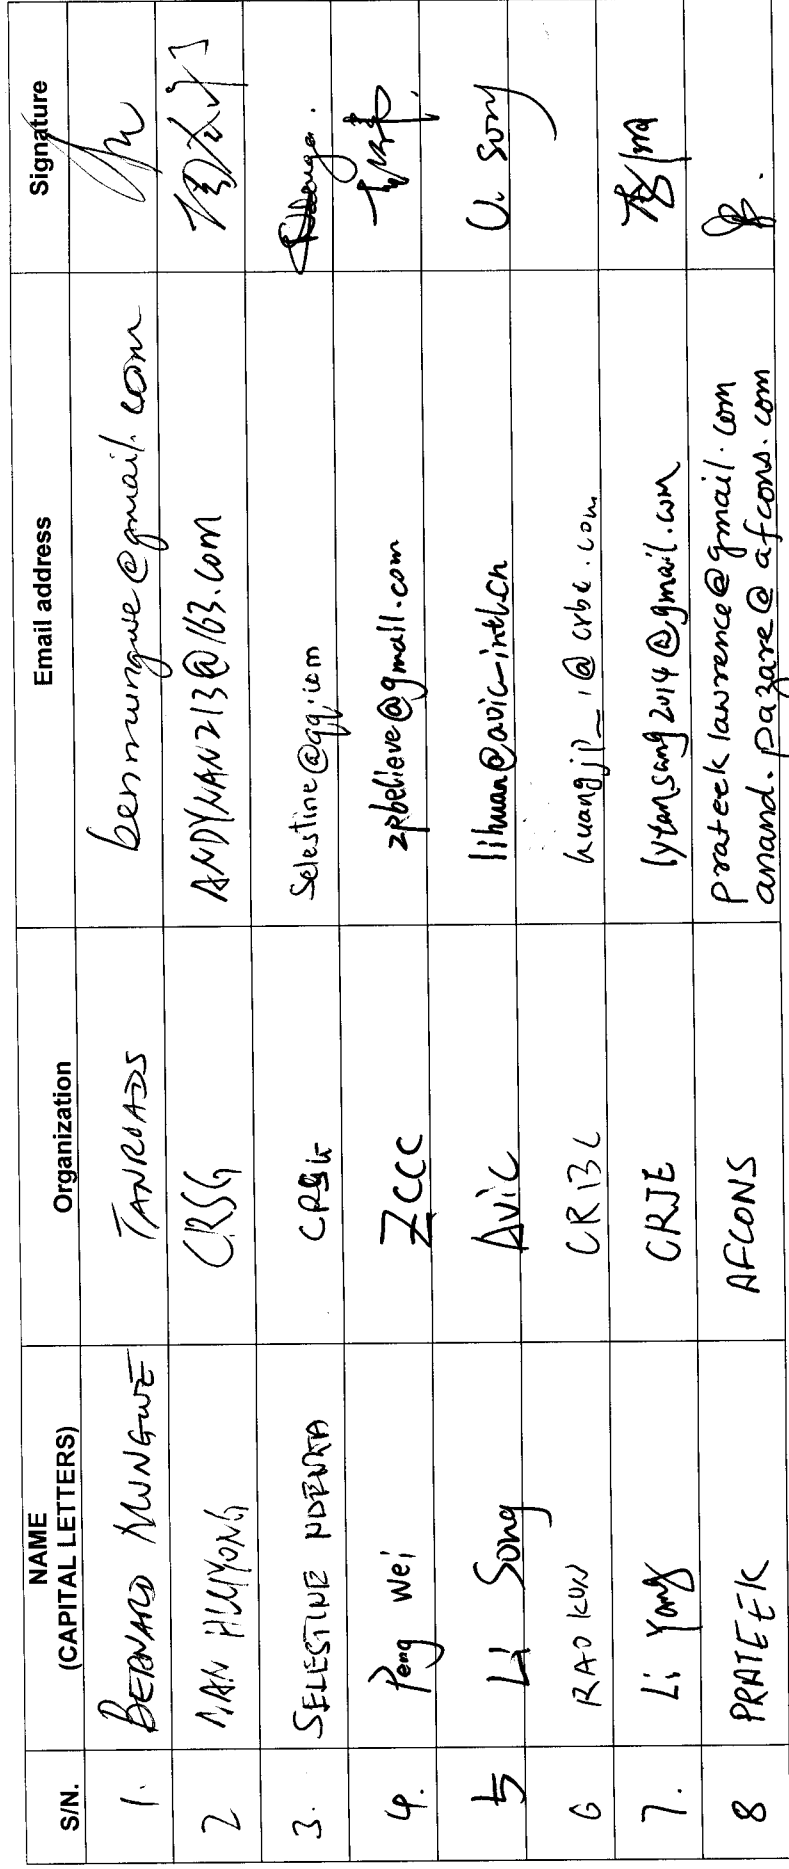 S/N. NAME (CAPITAL LETTERS) Organization Email address Signature
1. BERNARD MUNGWE TANROADS benmungwe@gmail.com
2 NAN HUIYONG CRSG ANDYNAN213@163.com
3. SELESTINE CRSG Selestine@qq.com
4. Peng Wei ZCCC zpbelieve@gmail.com
5 Li Song AVIC lihuan@avic-intl.cn Li Song
6 RAO KUN CRBC @crbc.com
7. Li Yang CRJE lytansang2014@gmail.com
8 PRATEEK AFCONS prateeklawrence@gmail.com
anand.pazare@afcons.com